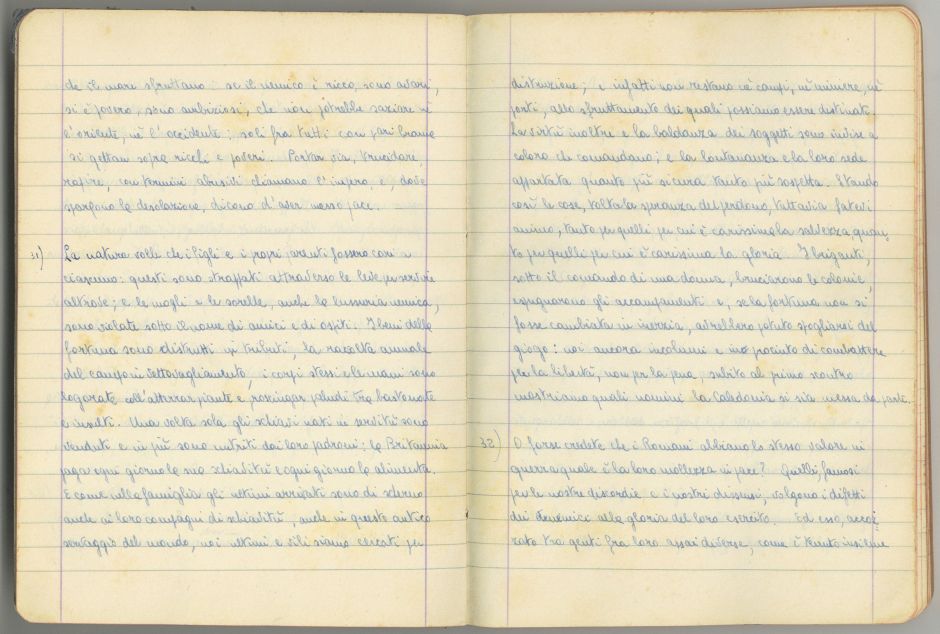 de il mare sfruttano: se il nemico è ricco, sono avari,
si è povero, sono ambiziosi, che non potrebbe saziare nè
l'oriente, nè l'occidente; soli fra tutti con pari brama
si gettano sopra ricchi e poveri. Portar via, trucidare,
rapire, con termini abusivi chiamano l'impero, e, dove
spargono la desolazione, dicono d'aver messo pace.
31) La natura volle che i figli e i propri parenti fossero cari a
ciascuno: questi sono strappati attraverso le leve per servire
altrove; e le mogli e le sorelle, anche la lussuria nemica,
sono violate sotto il nome di amici e di ospiti. I beni della
fortuna sono distrutti in tributi, la raccolta annuale
del campo in vettovagliamento, i corpi stessi e le mani sono
logorate coll'atterrar piante e prosciugar paludi tra bastonate
e insulti. Una volta sola gli schiavi nati in servitù sono
venduti e in più sono nutriti dai loro padroni; la Britannia
paga ogni giorno la sua schiavitù e ogni giorno la alimenta.
E come nella famiglia gli ultimi arrivati sono di scherno
anche ai loro compagni di schiavitù, anche in questo antico
servaggio del mondo, noi ultimi e vili siamo cercati per
distruzione; e infatti non restano nè campi, nè miniere, nè
porti, allo sfruttamento dei quali possiamo essere destinati.
La virtù inoltre e la baldanza dei soggetti sono invise a
coloro che comandano; e la lontananza e la loro sede
appartata quanto più sicura tanto più sospetta. Stando
così le cose, tolta la speranza del perdono, tuttavia fatevi
animo, tanto per quelli per cui è carissima la salvezza, quan
to per quelli per cui è carissima la gloria. I briganti,
sotto il comando di una donna, bruciarono le colonie,
espugnarono gli accampamenti e, se la fortuna non si
fosse cambiata in inerzia, avrebbero potuto spogliarsi del
giogo: noi ancora incolumi e in procinto di combattere
per la libertà, non per la pena, subito al primo scontro
mostriamo quali uomini la Caledonia si sia messa da parte.
32) O forse credete che i Romani abbiano lo stesso valore in
guerra quale è la loro mollezza in pace? Quelli, famosi
per le nostre discordie e i nostri dissensi, volgono i difetti
dei nemici alla gloria del loro esercito. Ed esso, accoz
zato tra genti fra loro assai diverse, come è tenuto insieme